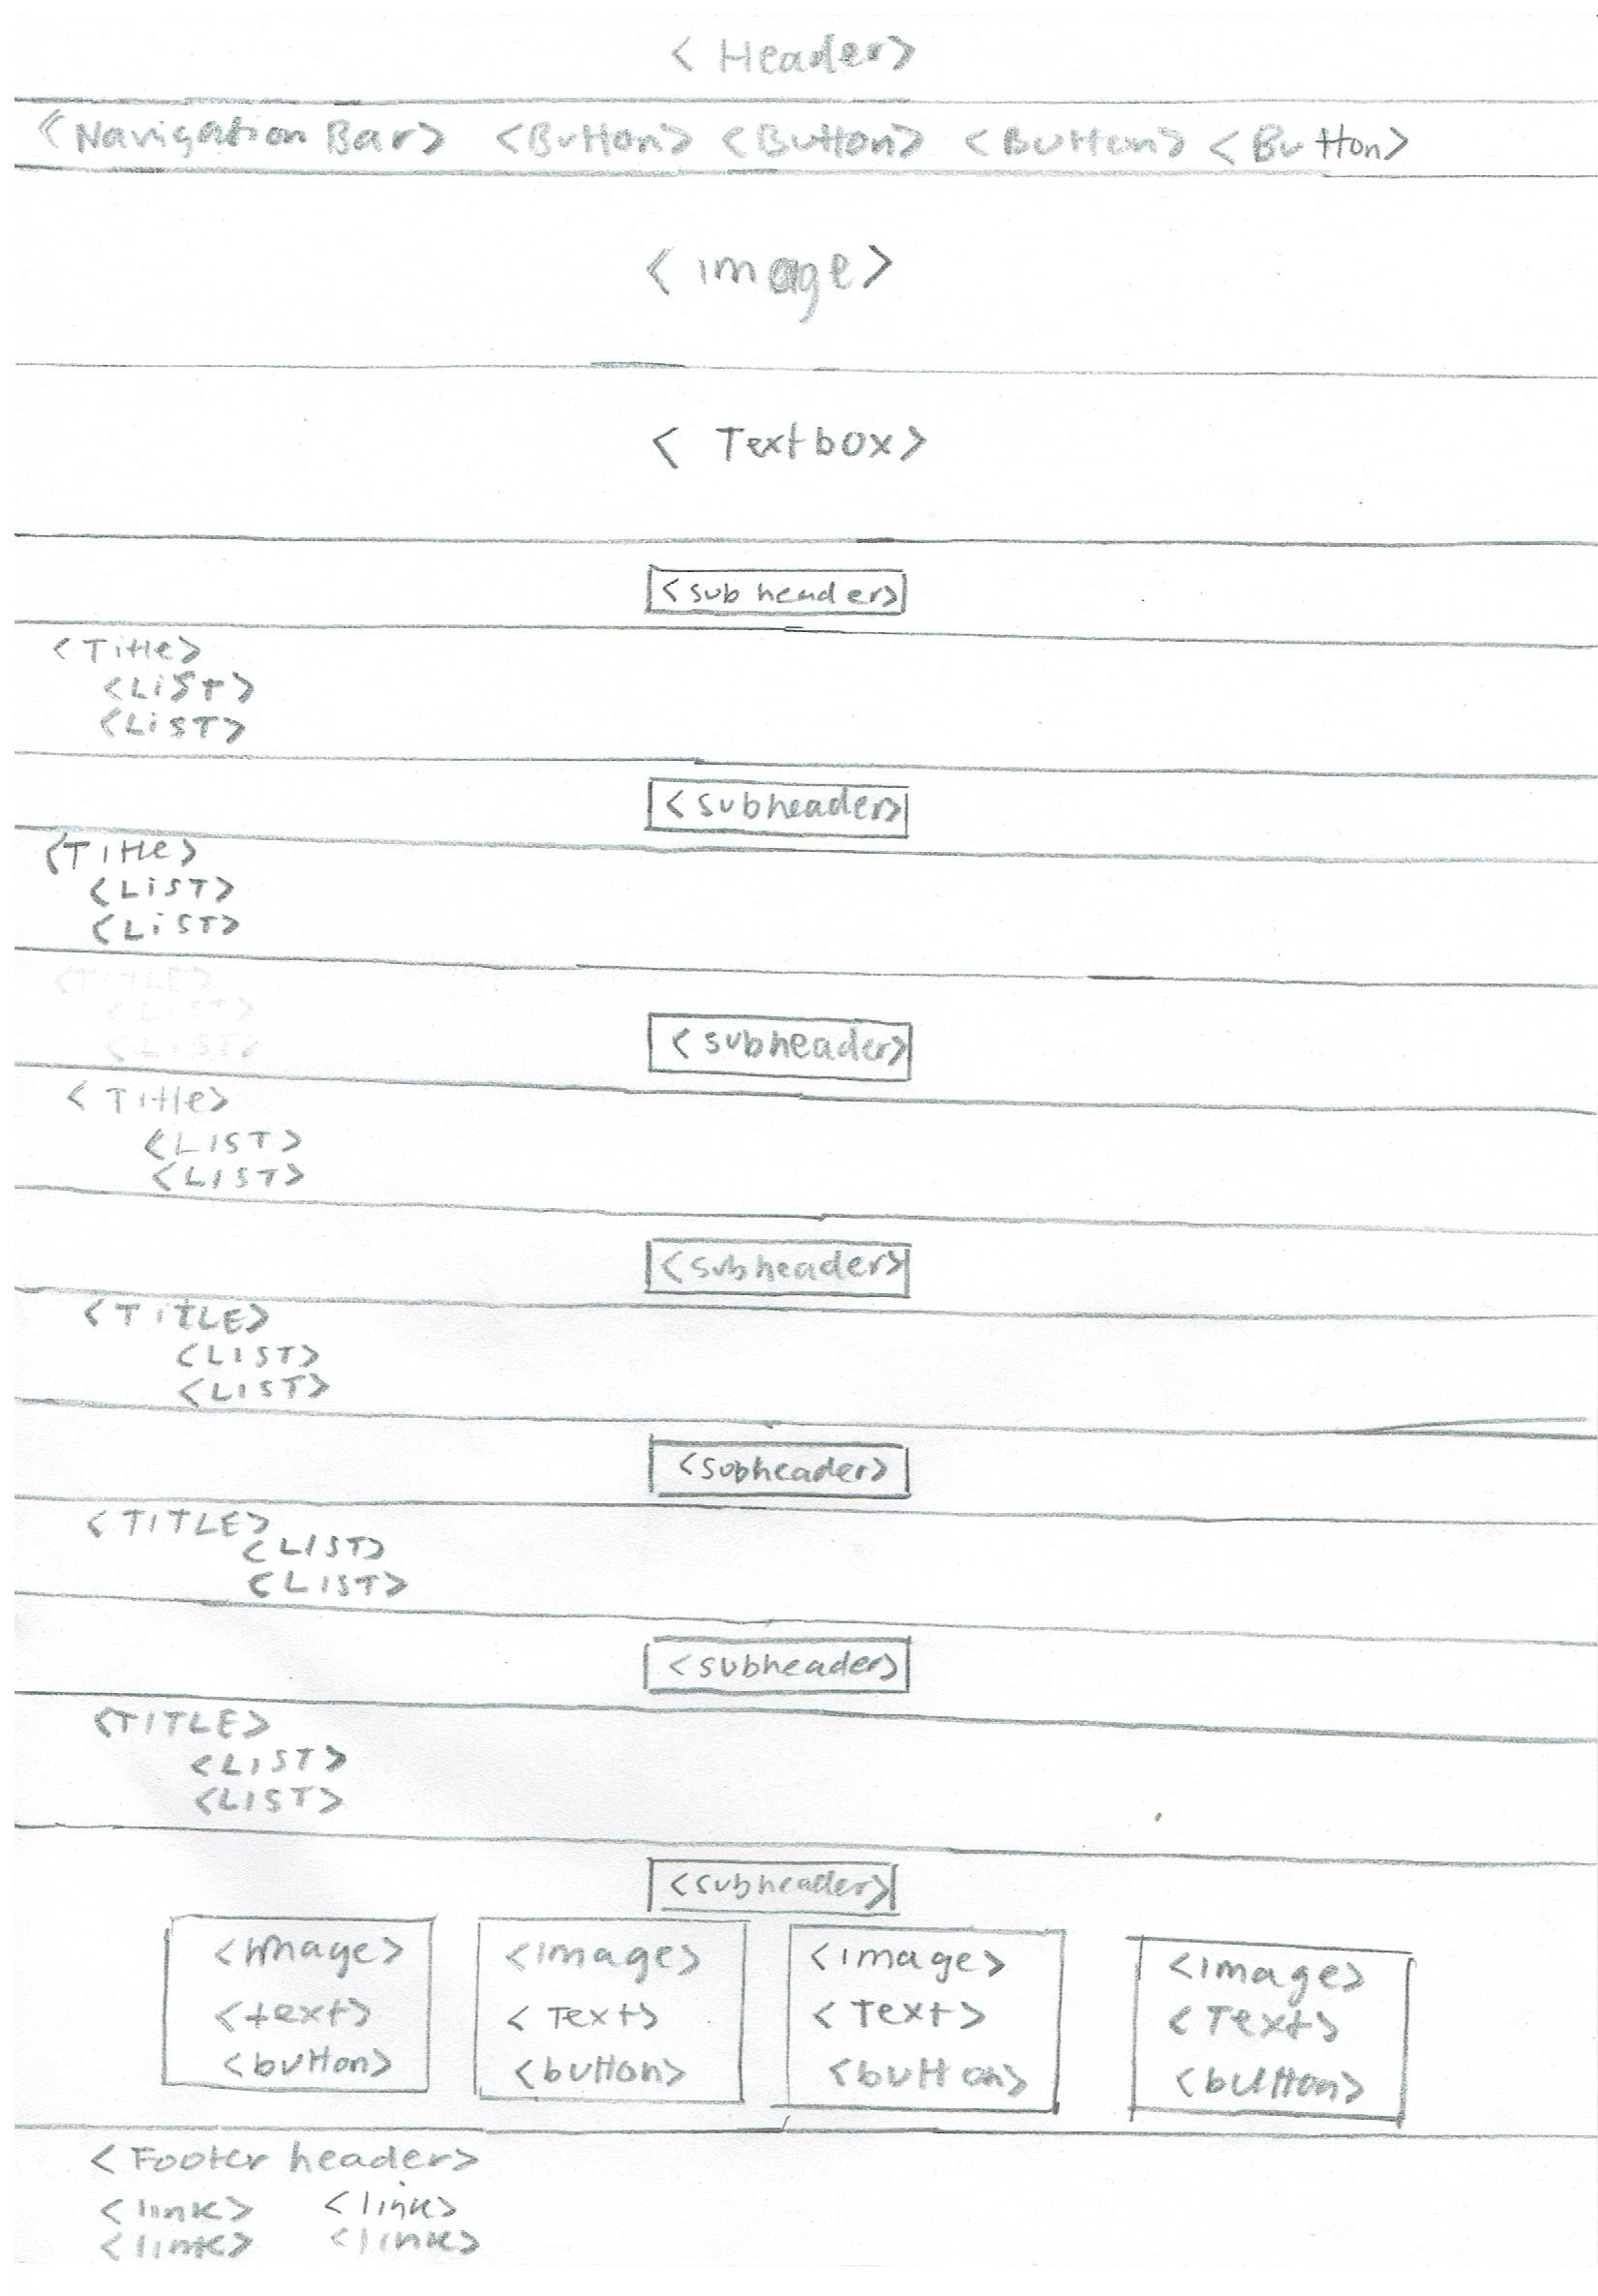 < Header>
<Navigation Bar> <Button> <Button> <Button> <Button>
< image>
< Textbox>
<sub header>
<Title>
<List>
<LiST>
<subheader>
<Title>
<LiST>
<LiST>
<TITLE>
<LIST>
<LIST>
<subheader>
<Title>
<LIST>
<LIST>
<subheader>
<TITLE>
<LIST>
<LIST>
<subheader>
<TITLE>
<LIST>
<LIST>
<subheader>
<TITLE>
<LIST>
<LIST>
<subheader>
<image> <image> <image> <image>
<text> <Text> <Text> <Text>
<button> <button> <button> <button>
<Footer header>
<link> <link>
<link> <link>